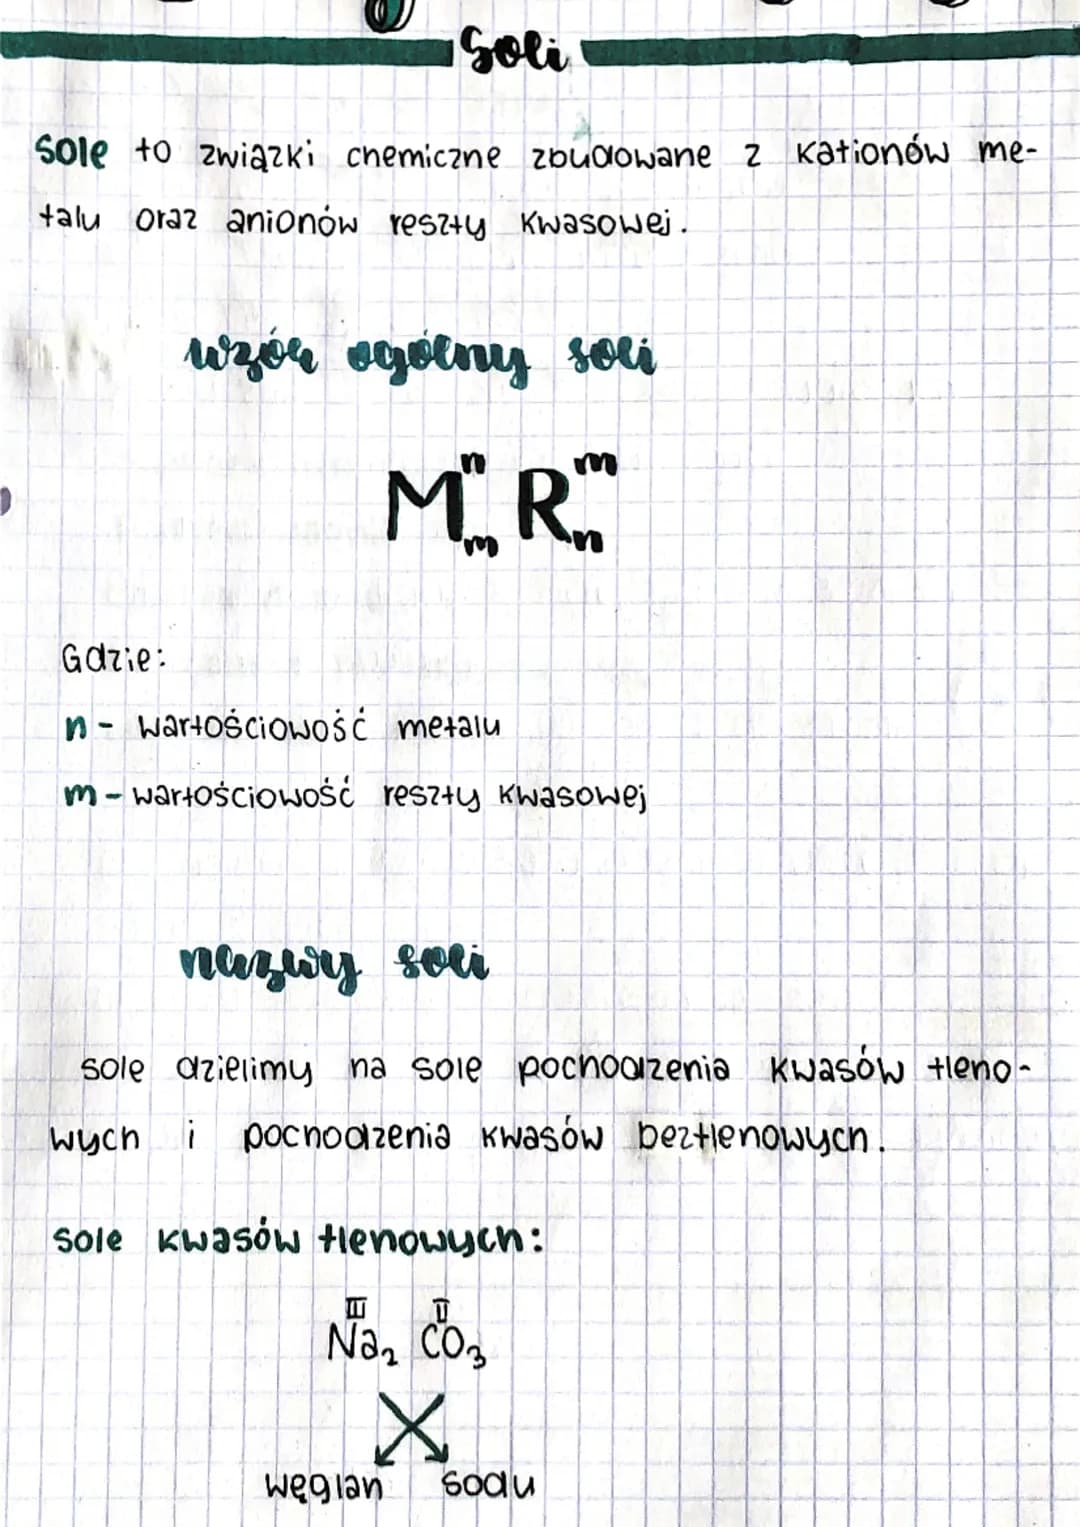 Soli
Sole to związki chemiczne zbudowane z kationów me-
talu oraz anionów reszty kwasowej.
wzór ogólny soli
Mⁿₘ Rᵐₙ
Gdzie:
n - wartościowość metalu
m - wartościowość reszty kwasowej
nazwy soli
sole dzielimy na sole pochodzenia kwasów tleno-
wych i pochodzenia kwasów beztlenowych.
sole kwasów tlenowych:
III II
Na₂ CO₃
węglan sodu